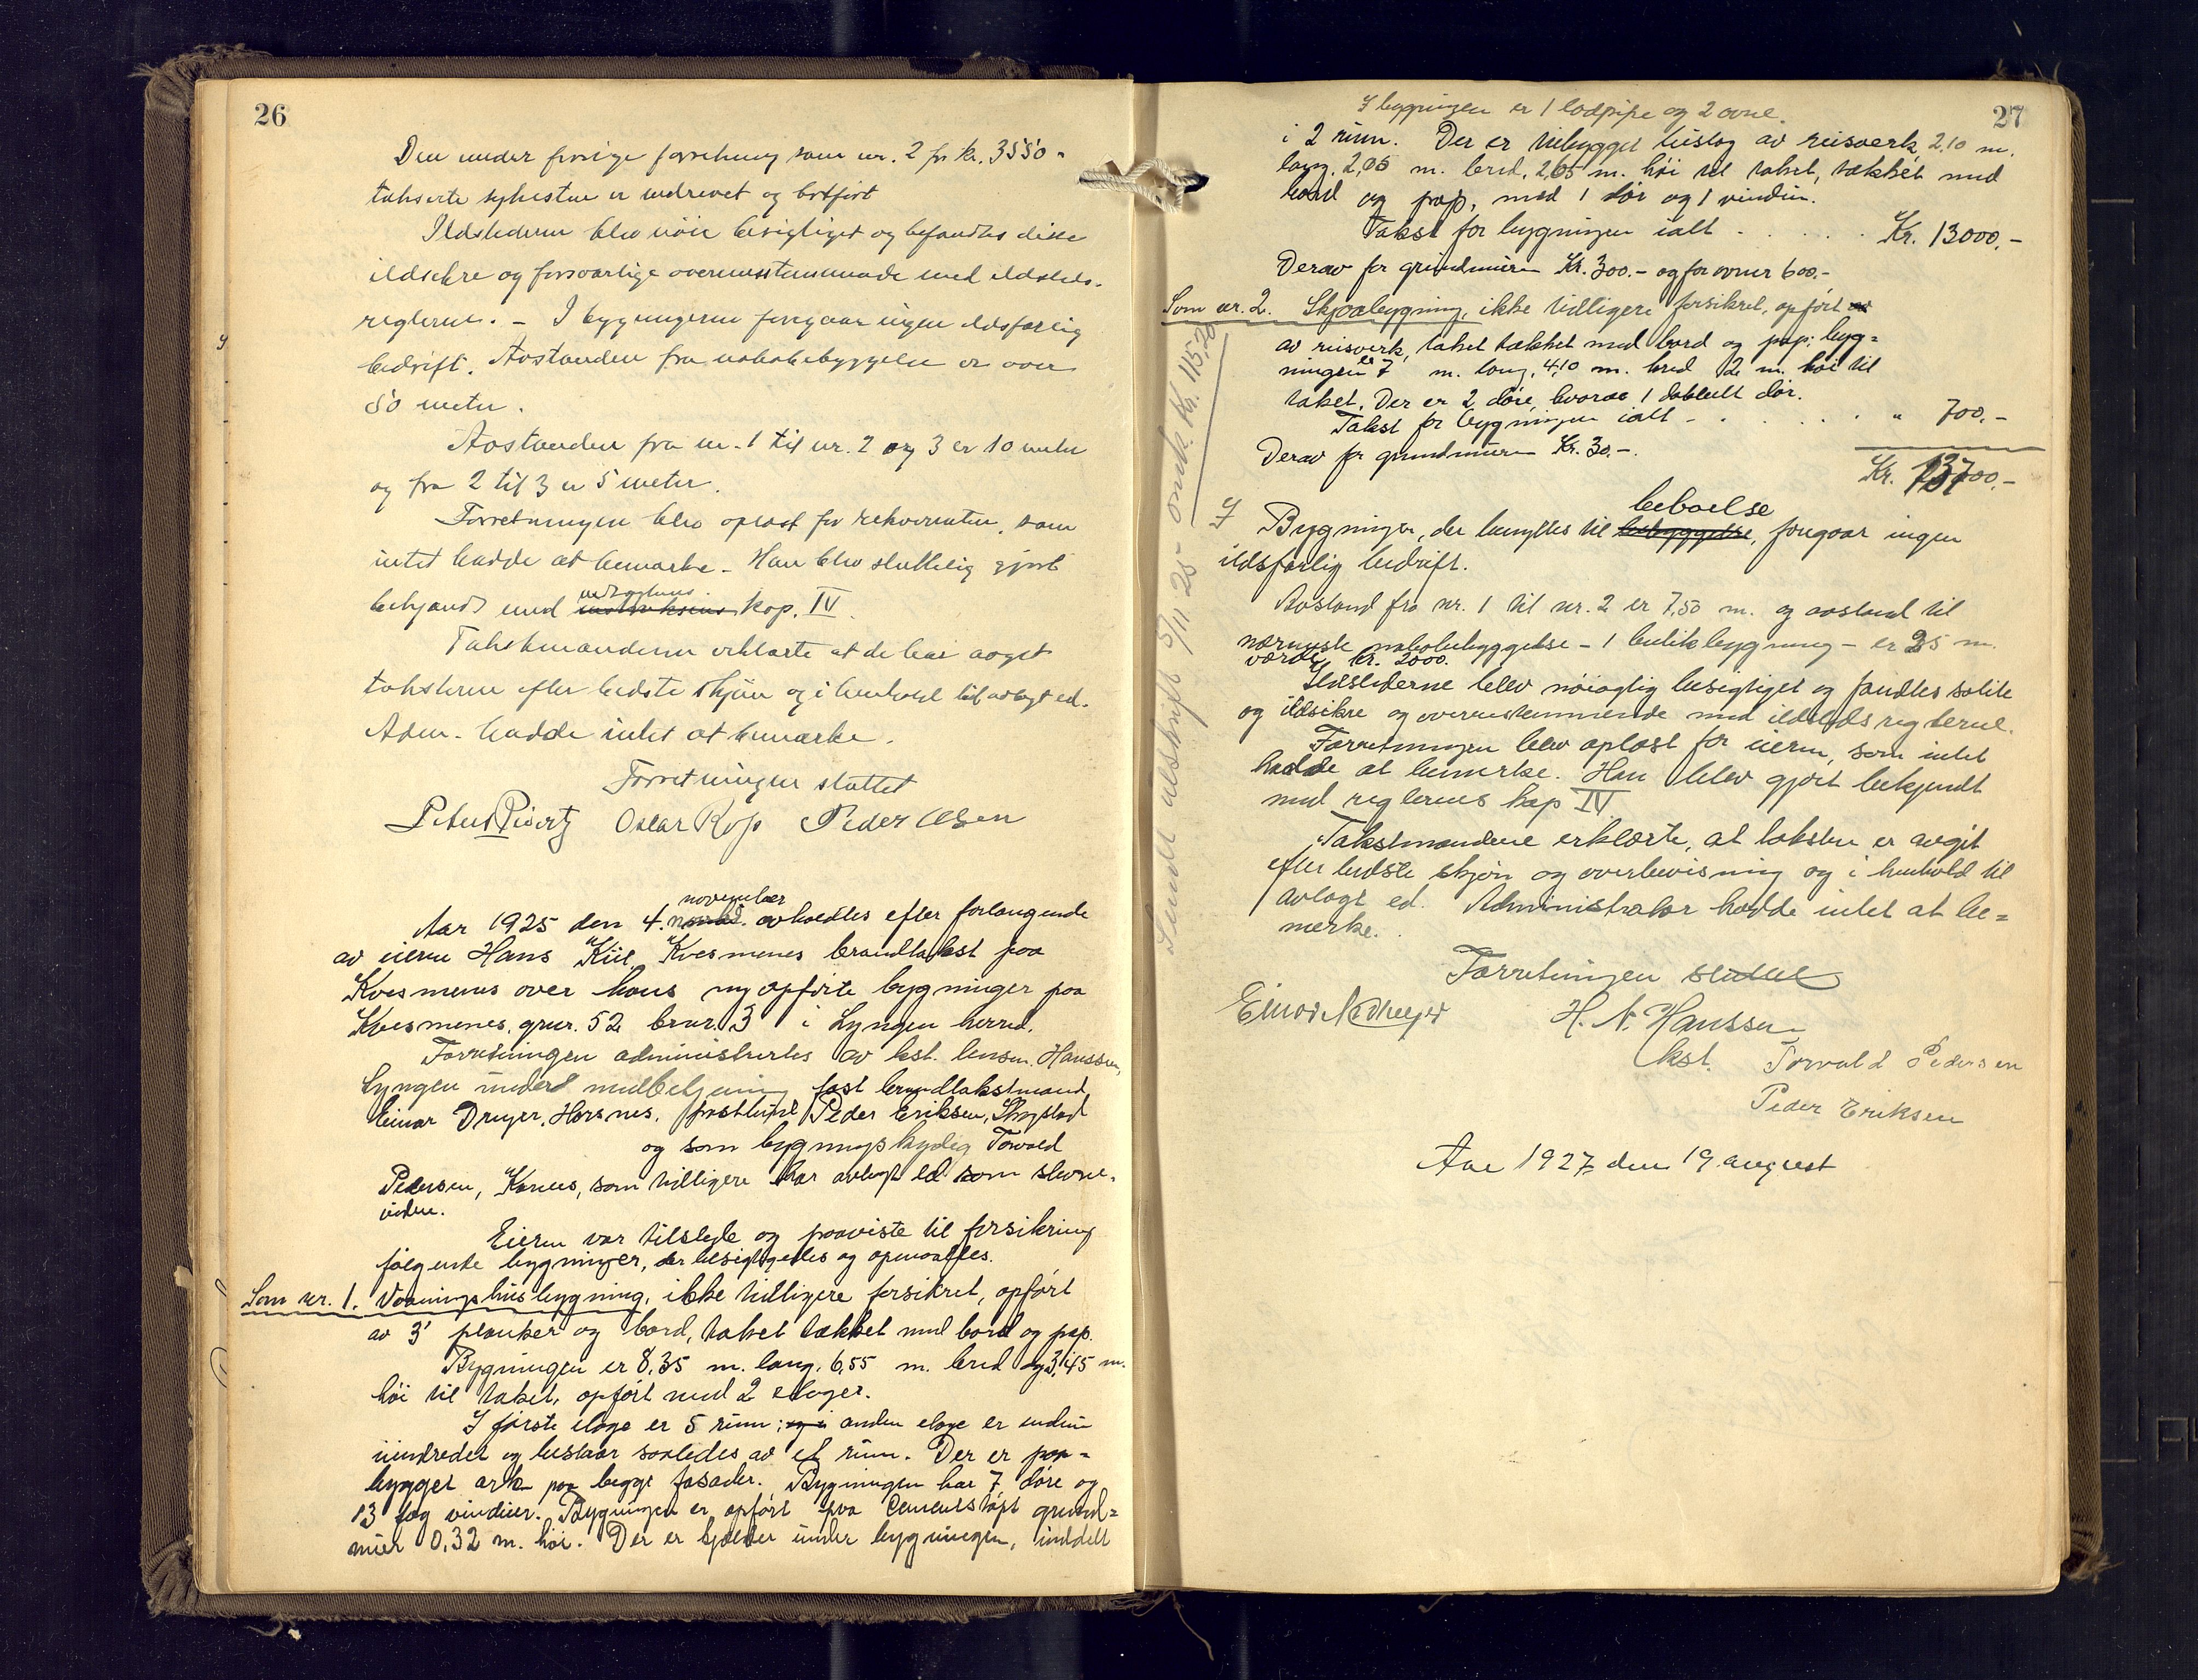 26
Den under forrige forretning som nr. 2 for kr. 3550.-
takserte sykestue er nedrevet og bortført
Ildstederne blev nöie besigtiget og befandtes disse
ildsikre og forsvarlige overensstemmende med ildsteds-
reglerne. - I bygningerne foregaar ingen ildsfarlig
bedrift. Avstanden fra nabobebyggelse er over
50 meter.
Avstanden fra nr. 1 til nr. 2 og 3 er 10 meter
og fra 2 til 3 er 5 meter.
Forretningen blev oplæst for rekvirenten, som
intet hadde at bemærke. Han blev sluttelig gjort
vedtægtens
bekjendt med instruksens kap. IV.
Takstmændene erklærte at de har avgit
taksterne efter bedste skjön og i henhold til avlagt ed.
Adm. hadde intet at bemærke.
Forretningen sluttet
Oscar Peder Olsen
november
Aar 1925 den 4. avholdtes efter forlangende
av eieren Hans Kiil Kvesmenes brandtakst paa
Kvesmenes over hans nyopförte bygninger paa
Kvesmenes, gnr. 52 brnr. 3 i Lyngen herred.
Forretningen administrertes av kst. lensm. Hanssen,
Lyngen under medbetjening fast brandtakstmand
Einar Dreyer, Horsnes, Peder Eriksen,
og som bygningskyndig Torvald
Pedersen, som tidligere har avlagt ed som skjöns-
vidne.
Eieren var tilstede og paaviste til forsikring
fölgende bygninger, der besigtigedes og opmaaltes.
Som nr. 1. Vaaningshusbygning, ikke tidligere forsikret, opfört
av 3" planker og bord, taket tækket med bord og pap.
Bygningen er 8,35 m. lang, 6,55 m. bred og 3,45 m.
höi til taket, opfört med 2 etager.
I förste etage er 5 rum; og i anden etage er endnu
uindredet og bestaar saaledes av et rum. Der er paa-
bygget ark paa begge fasader. Bygningen har 7 döre og
13 fag vinduer. Bygningen er opfört paa cementstöpt grund-
mur 0,32 m. höi. Der er kjælder under bygningen, inddelt
27
I bygningen er 1 lodpipe og 2 ovne.
i 2 rum. Der er tilbygget bislag av reisverk 2,10 m.
lang, 2,05 m. bred, 2,65 m. höi til taket, tækket med
bord og pap, med 1 dör og 1 vindu.
Takst for bygningen ialt - . . . . . Kr. 13000.-
Derav for grundmuren Kr. 300.- og for ovner 600.-
Som nr. 2. Skjaabygning, ikke tidligere forsikret, opfört av
av reisverk, taket tækket med bord og pap; byg=
ningen er 7 m. lang, 4,10 m. bred 2 m. höi til
taket. Der er 2 döre, hvorav 1 dobbelt dör.
Takst for bygningen ialt - . . . . . " 700.-
Derav for grundmuren Kr. 30.-.
Kr. 13700.-
beboelse
I Bygningen, der benyttes til bebyggelse, foregaar ingen
ildsfarlig bedrift.
Avstand fra nr. 1 til nr. 2 er 7,50 m. og avstand til
nærmeste nabobebyggelse - 1 butikbygning - er 25 m.
værdi kr. 2000.
Ildstederne blev nöiagtig besigtiget og fandtes solide
og ildsikre og overenstemmende med ildstedsreglerne.
Forretningen blev oplæst for eieren, som intet
hadde at bemerke. Han blev gjort bekjendt
med reglernes kap IV
Takstmændene erklærte, at taksten er avgit
efter bedste skjön og overbevisning og i henhold til
avlagt ed. Administrator hadde intet at be=
merke.
Forretningen sluttet
Einar Dreyer H. N. Hanssen
kst. Torvald Pedersen
Peder Eriksen
Aar 1927 den 19. august
Sendt utskrift 5/11 25 - omk. Kr. 115,20